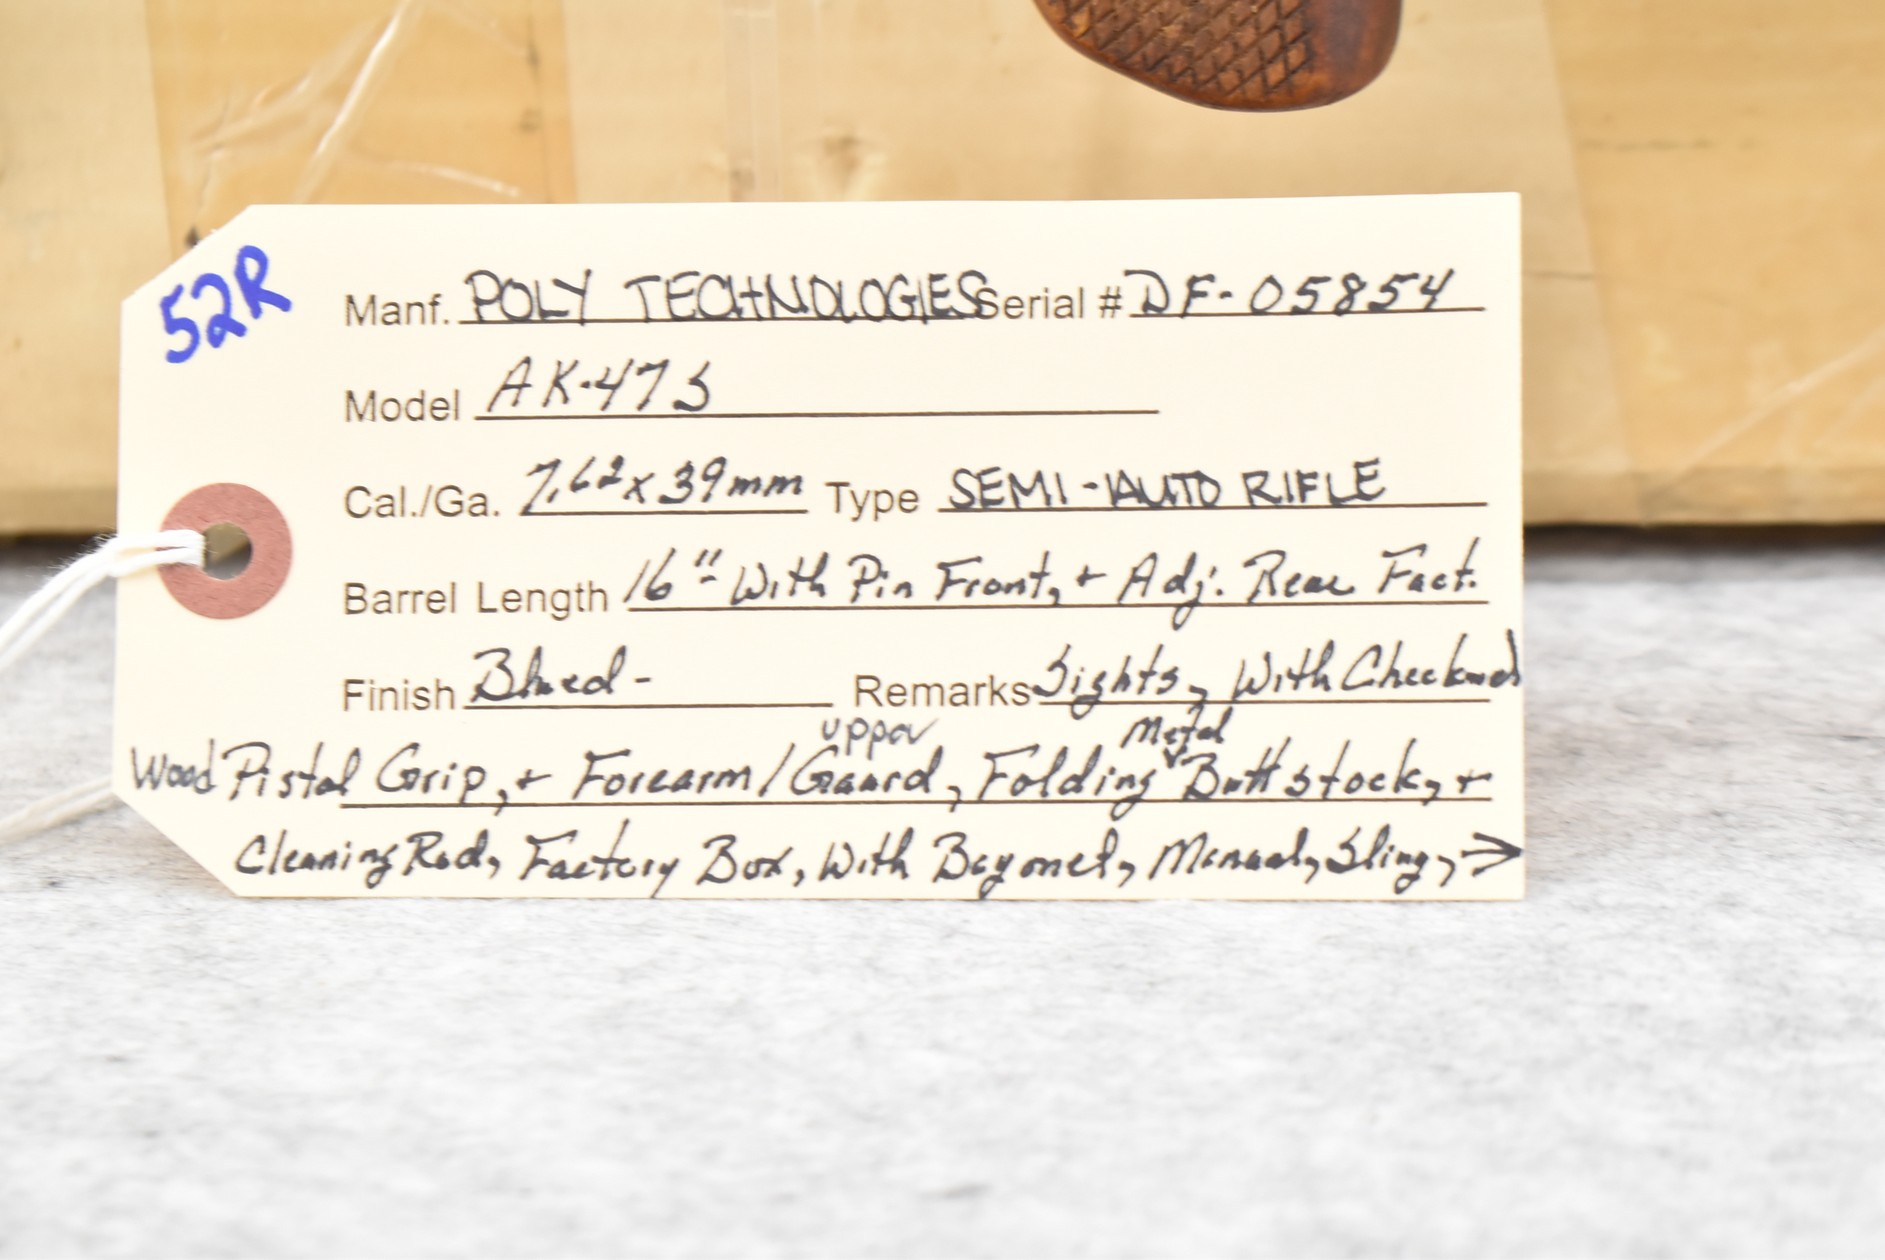 52R
Manf. POLY TECHNOLOGIES Serial # DF-05854
Model AK-47S
Cal./Ga. 7.62x39mm Type SEMI-AUTO RIFLE
Barrel Length 16"- With Pin Front, + Adj. Rear Fact.
Finish Blued- Remarks Sights, With Checkered
upper Metal
Wood Pistol Grip, + Forearm/Gaurd, Folding Buttstock, +
Cleaning Rod, Factory Box, With Bayonet, Manual, Sling, →